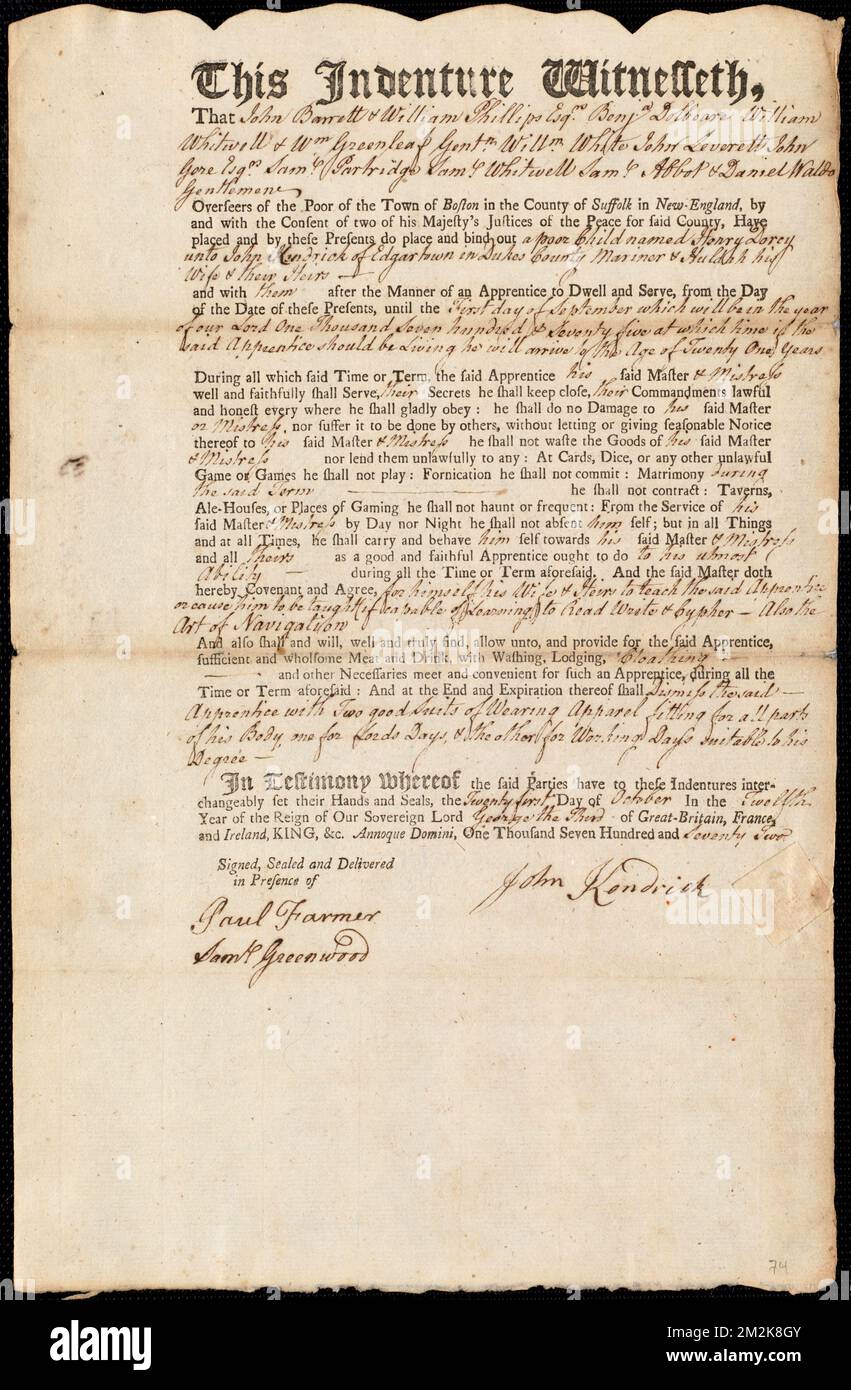 This Indenture Witnesseth,
That John Barrett & William Phillips Esqrs Benja Dolbeare William
Whitwell & Wm Greenleaf Gentn Willm White John Leverett John
Gore Esqrs Saml Partridge Saml Whitwell Saml Abbot & Daniel Waldo
Gentlemen
Overseers of the Poor of the Town of Boston in the County of Suffolk in New-England, by
and with the Consent of two of his Majesty's Justices of the Peace for said County, Have
placed and by these Presents do place and bind out a poor Child named Henry Lorey
unto John Kendrick of Edgartown in Dukes County Mariner & Huldah his
Wife & their Heirs —
and with them after the Manner of an Apprentice to Dwell and Serve, from the Day
of the Date of these Presents, until the First day of September which will be in the year
of our Lord One Thousand Seven hundred & Seventy five at which time if the
said Apprentice should be Living he will arrive to the Age of Twenty One Years
During all which said Time or Term, the said Apprentice his said Master & Mistress
well and faithfully shall Serve, their Secrets he shall keep close, their Commandments lawful
and honest every where he shall gladly obey : he shall do no Damage to his said Master
or Mistress, nor suffer it to be done by others, without letting or giving seasonable Notice
thereof to his said Master & Mistress he shall not waste the Goods of his said Master
& Mistress nor lend them unlawfully to any : At Cards, Dice, or any other unlawful
Game or Games he shall not play : Fornication he shall not commit : Matrimony during
the said Term — he shall not contract : Taverns,
Ale-Houses, or Places of Gaming he shall not haunt or frequent : From the Service of his
said Master & Mistress by Day nor Night he shall not absent him self ; but in all Things
and at all Times, he shall carry and behave him self towards his said Master & Mistress
and all Theirs as a good and faithful Apprentice ought to do to his utmost
Ability — during all the Time or Term aforesaid. And the said Master doth
hereby Covenant and Agree, for himself his Wife & Heirs to teach the said Apprentice
or cause him to be taught (if capable of Learning) to Read Write & Cypher — Also the
Art of Navigation
And also shall and will, well and truly find, allow unto, and provide for the said Apprentice,
sufficient and wholsome Meat and Drink, with Washing, Lodging, Cloathing —
— and other Necessaries meet and convenient for such an Apprentice, during all the
Time or Term aforesaid : And at the End and Expiration thereof shall Dismiss the said —
Apprentice with Two good Suits of Wearing Apparel fitting for all parts
of his Body, one for Lords Days, & the other for Working Days suitable to his
Degree —
In Testimony whereof the said Parties have to these Indentures inter-
changeably set their Hands and Seals, the Twenty first Day of October In the Twelfth
Year of the Reign of Our Sovereign Lord George the Third of Great-Britain, France,
and Ireland, KING, &c. Annoque Domini, One Thousand Seven Hundred and Seventy Two.
Signed, Sealed and Delivered
in Presence of
John Kendrick
Paul Farmer
Saml Greenwood
74
alamy
Image ID: 2M2K8GY
www.alamy.com